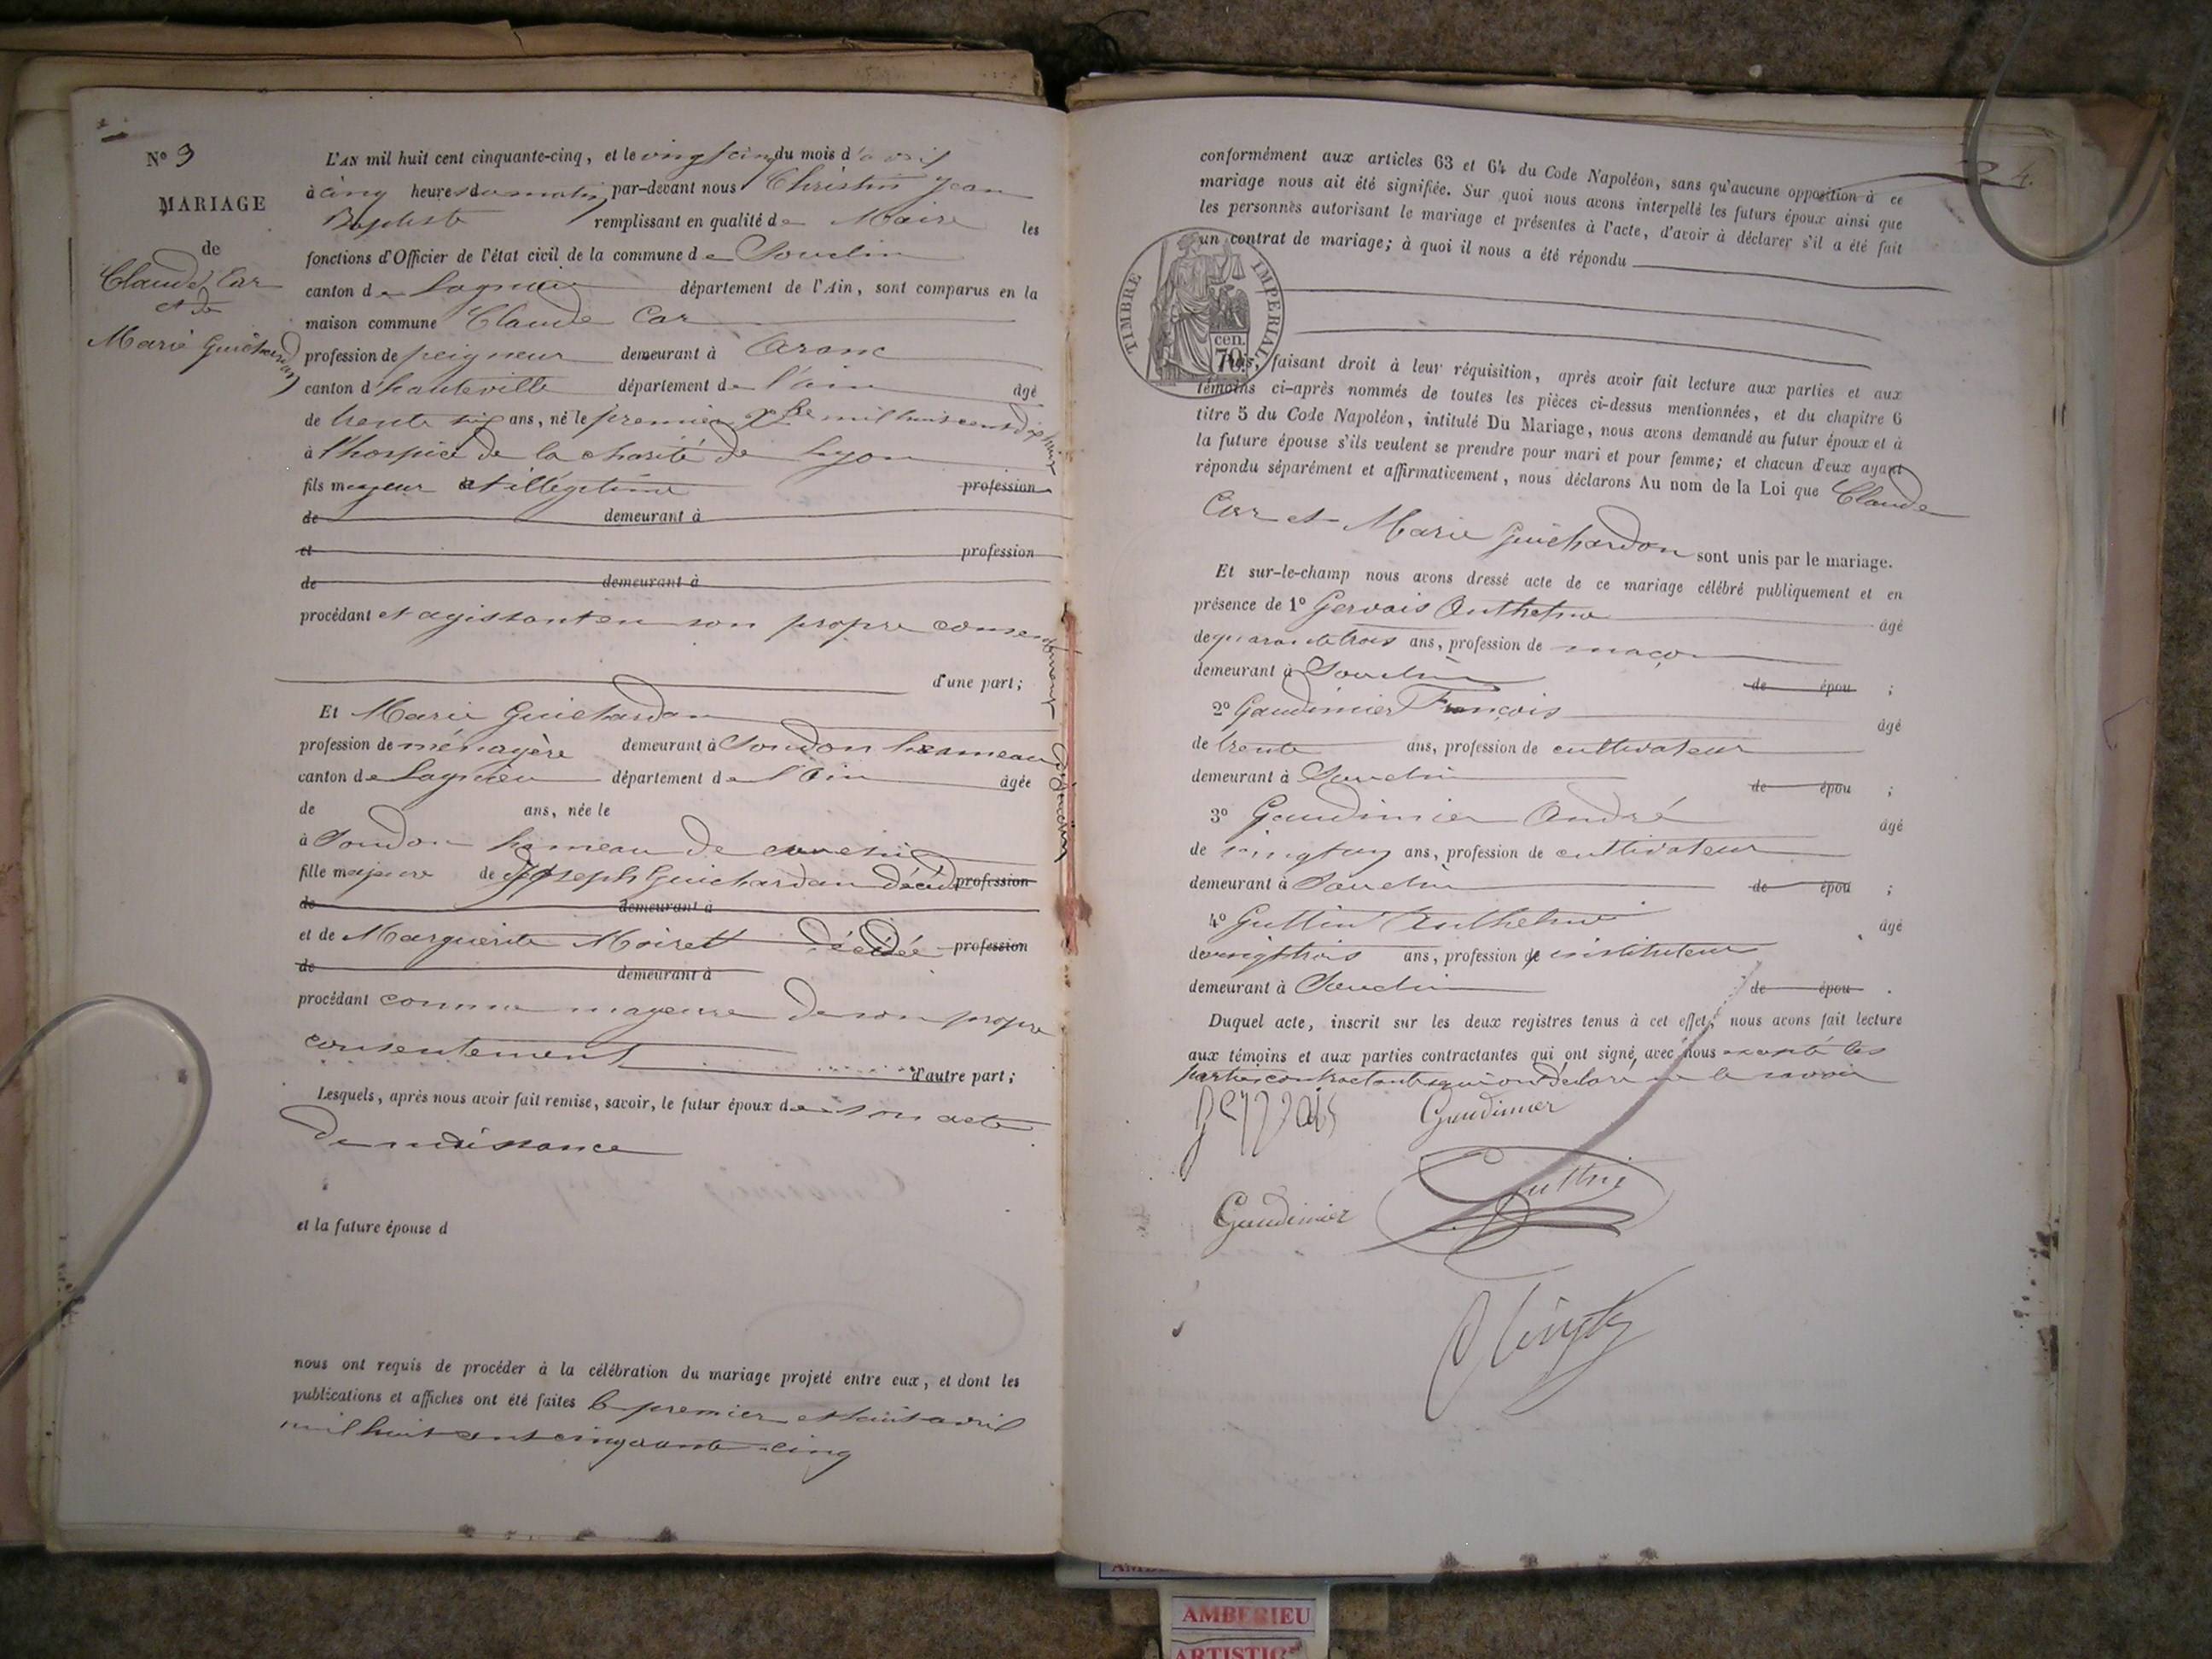 N° 3
MARIAGE
de
Claude Car
et de
Marie Guichardon
L'AN mil huit cent cinquante-cinq, et le vingt cinq du mois d'avril
à cinq heures du matin par-devant nous Christin Jean
Baptiste remplissant en qualité de Maire les
fonctions d'Officier de l'état civil de la commune de Souclin
canton de Lagnieu département de l'Ain, sont comparus en la
maison commune Claude Car
profession de peigneur demeurant à Aranc
canton d'hauteville département de l'ain âgé
de trente six ans, né le premier Xbre mil huit cent dix huit
à l'hospice de la charité de Lyon
fils majeur et illégitime profession
de demeurant à
et profession
de demeurant à
procédant et agissant en son propre consentement
d'une part;
Et Marie Guichardon
profession de ménagère demeurant à Soudon hameau
canton de Lagnieu département de l'Ain âgée
de ans, née le
à Soudon hameau de
fille majeure de Joseph Guichardon décédé profession
de demeurant à
et de Marguerite Moiret décédée profession
de demeurant à
procédant comme mageure de son propre
consentement d'autre part;
Lesquels, après nous avoir fait remise, savoir, le futur époux de son acte
de naissance
et la future épouse d
nous ont requis de procéder à la célébration du mariage projeté entre eux, et dont les
publications et affiches ont été faites le premier et huit avril
mil huit cent cinquante cinq
4.
conformément aux articles 63 et 64 du Code Napoléon, sans qu'aucune opposition à ce
mariage nous ait été signifiée. Sur quoi nous avons interpellé les futurs époux ainsi que
les personnes autorisant le mariage et présentes à l'acte, d'avoir à déclarer s'il a été fait
un contrat de mariage; à quoi il nous a été répondu
TIMBRE IMPERIAL
70 cen.
faisant droit à leur réquisition, après avoir fait lecture aux parties et aux
témoins ci-après nommés de toutes les pièces ci-dessus mentionnées, et du chapitre 6
titre 5 du Code Napoléon, intitulé Du Mariage, nous avons demandé au futur époux et à
la future épouse s'ils veulent se prendre pour mari et pour femme; et chacun d'eux ayant
répondu séparément et affirmativement, nous déclarons Au nom de la Loi que Claude
Car et Marie Guichardon sont unis par le mariage.
Et sur-le-champ nous avons dressé acte de ce mariage célébré publiquement et en
présence de 1° Gervais Anthelme âgé
de quarante trois ans, profession de maçon
demeurant à Souclin de épou ;
2° Gaudinier François âgé
de trente ans, profession de cultivateur
demeurant à Souclin de épou ;
3° Gaudinier André âgé
de ans, profession de cultivateur
demeurant à Souclin de épou ;
4° Guttin Anthelme âgé
de vingt trois ans, profession de instituteur
demeurant à Souclin de épou .
Duquel acte, inscrit sur les deux registres tenus à cet effet, nous avons fait lecture
aux témoins et aux parties contractantes qui ont signé avec nous excepté les
parties contractantes qui ont déclaré ne le savoir
Gervais Gaudinier
Gaudinier Guttin
AMBERIEU
ARTISTIC